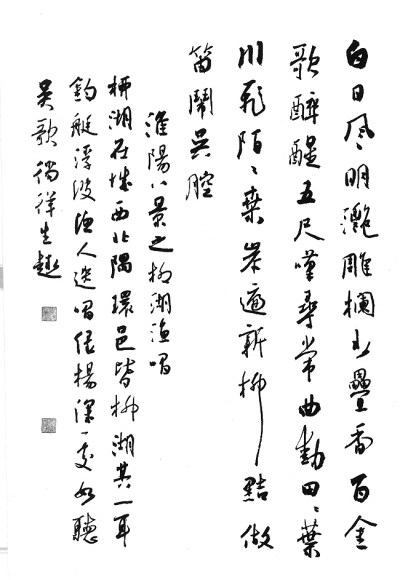 白日風〻明灧雕欄疊香百金
歌醉醒五尺嘆尋常曲動田〻葉
川陌〻新柳一點做
笛鬧吳腔
淮陽八景之柳湖漁唱
柳湖在城西北隅環邑皆柳湖其一耳
釣艇浮波漁人迭唱楊深處如聽
吳歌徜徉生趣